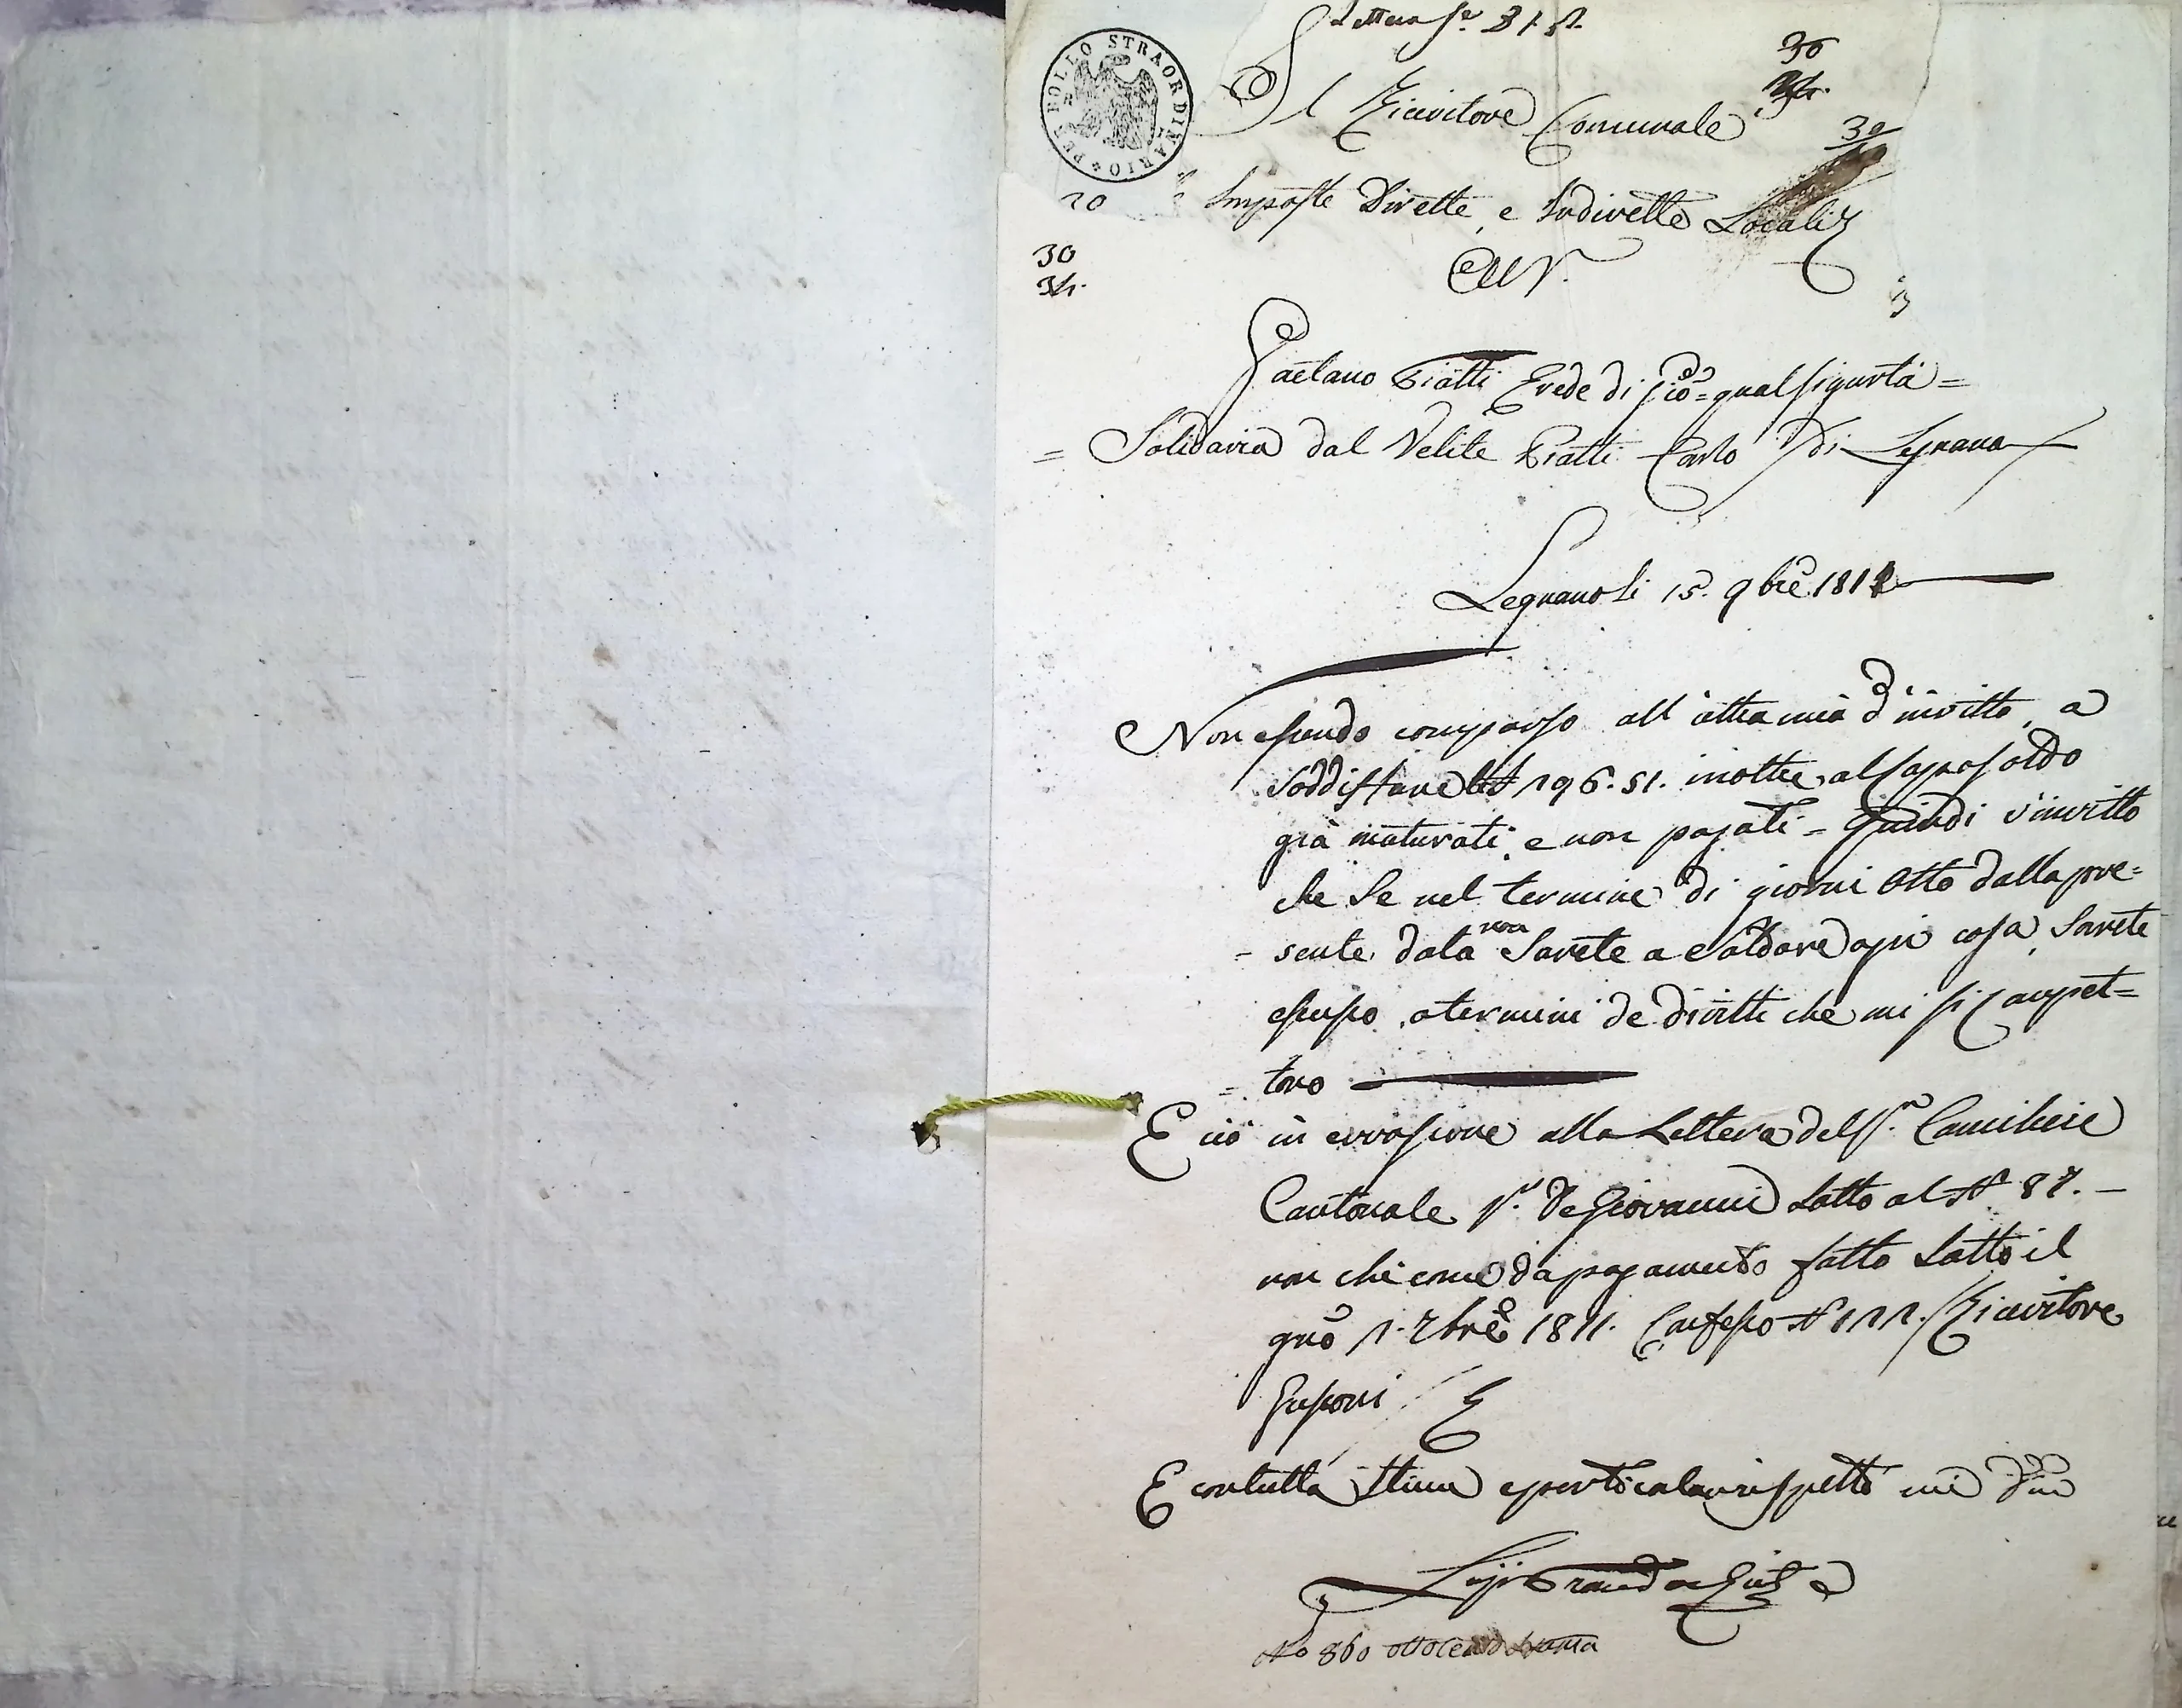 Lettera
PER BOLLO STRAORDINARIO
30
Il Ricevitore Comunale
30
Imposte Dirette, e Indirette Locali
20
30
34.
Al S.r
Gaetano Piatti Erede di Gio = qual sigurtà =
= Solidaria dal Velite Piatti Carlo di Legnano
Legnano li 15. 9bre 1812
Non essendo comparso all'altra mia d'invitto, a
Soddisfare 196.51. inoltre al caposoldo
già maturati, e non pagati = Quindi v'invitto
che se nel termine di giorni Otto dalla pre=
= sente data non Sarete a Saldare ogni cosa, Sarete
escusso, a termini de diritti che mi si compet=
= tono
E ciò in evvasione alla Lettera del S.r Canciliere
Cantonale S.r De Giovanni Sotto al N 87. -
non che come da pagamento fatto Sotto il
gno 1. 7bre 1811. Confesso N 111. Ricevitore
E con tutta Stima e particolar rispetto mi
Luigi
No 860 ottocento